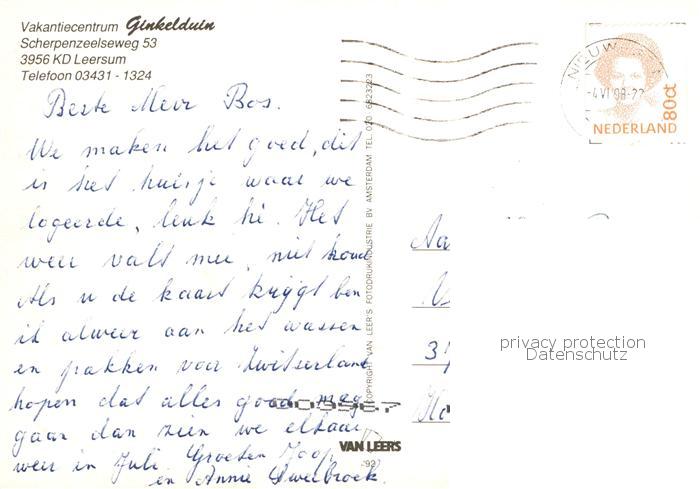 Vakantiecentrum Ginkelduin
Scherpenzeelseweg 53
3956 KD Leersum
Telefoon 03431 - 1324
Beste Mevr Bos.
We maken het goed, dit
is het huisje waar we
logeerde, leuk hè. Het
weer valt mee, niet koud
Als u de kaart krijgt ben
ik alweer aan het wassen
en pakken voor Zwitserland
hopen dat alles goed mag
gaan dan zien we elkaar
weer in Juli. Groeten Joop
en Annie
COPYRIGHT VAN LEER'S FOTODRUKINDUSTRIE BV AMSTERDAM TEL. 020 - 6823223
003967
VAN LEERS
'92
NIEUW
NEDERLAND
80ct
Aa
privacy protection
Datenschutz